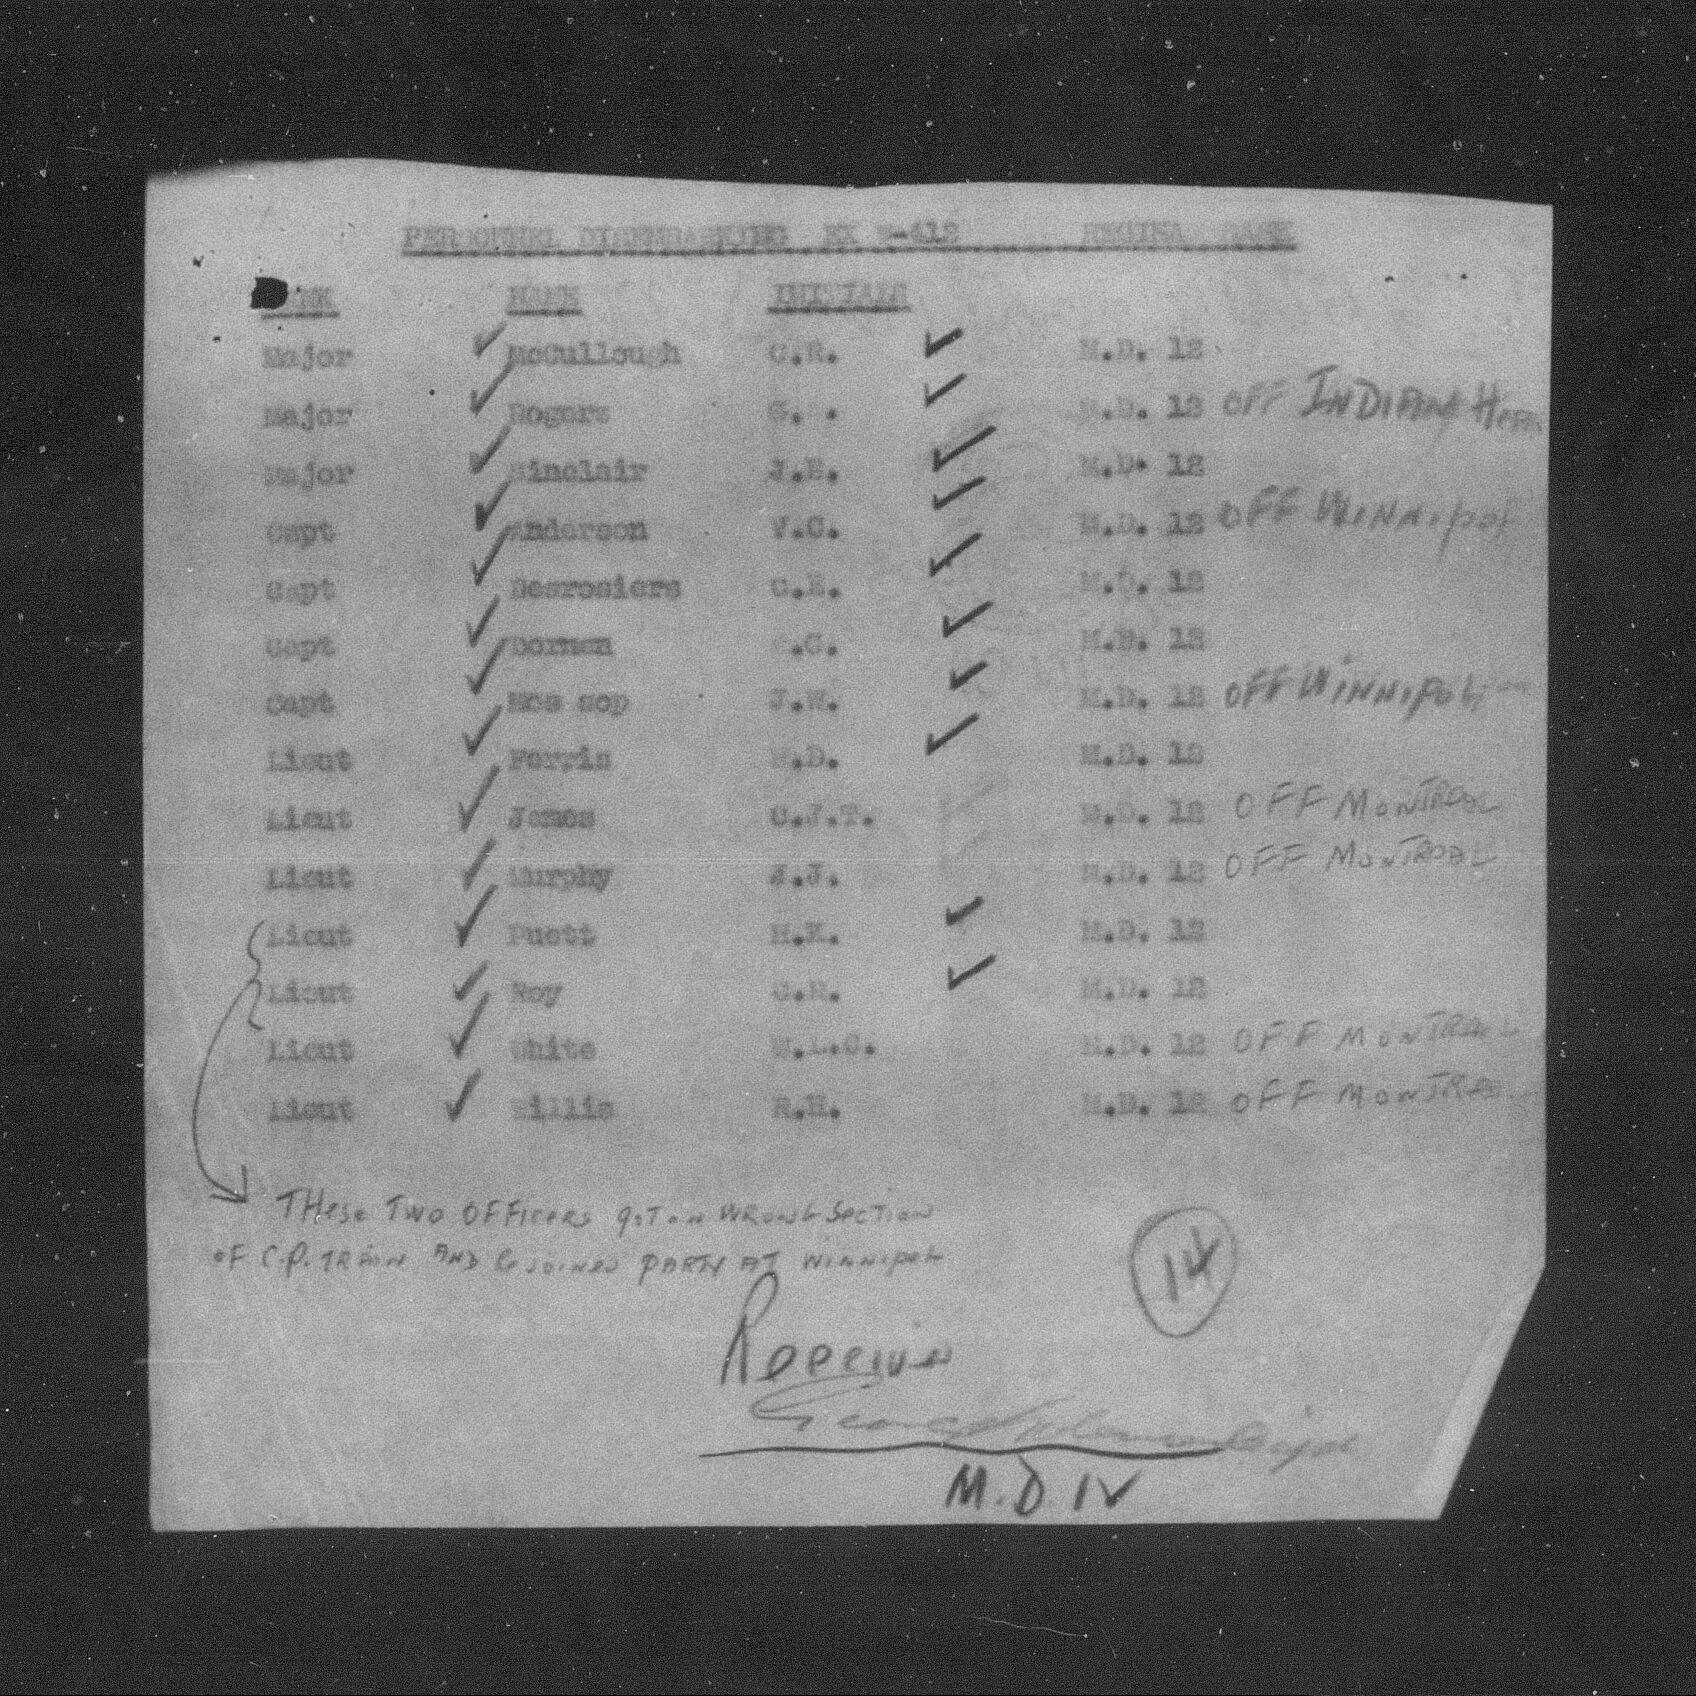 PERSONNEL DISEMBARKING EX W-412 REGINA SASK
NAME INITIALS
Major McCullough C.R. M.D. 12
Major Rogers G. . M.D. 12 OFF INDIAN HEAD
Major Sinclair J.E. M.D. 12
Capt Anderson V.C. M.D. 12 OFF WINNIPEG
Capt Desrosiers C.E. M.D. 12
Capt Dorman .G. M.D. 12
Capt Mos sop J.W. M.D. 12 OFF WINNIPEG
Lieut Ferris .D. M.D. 12
Lieut James C.J.T. M.D. 12 OFF MONTREAL
Lieut Murphy J.J. M.D. 12 OFF MONTREAL
Lieut Puett H.K. M.D. 12
Lieut Roy C.R. M.D. 12
Lieut White W.L.C. M.D. 12 OFF MONTREAL
Lieut Willis R.H. M.D. 12 OFF MONTREAL
THESE TWO OFFICERS GOT ON WRONG SECTION
OF C.P. TRAIN AND REJOINED PARTY AT WINNIPEG
14
Received
George
M.D. 12